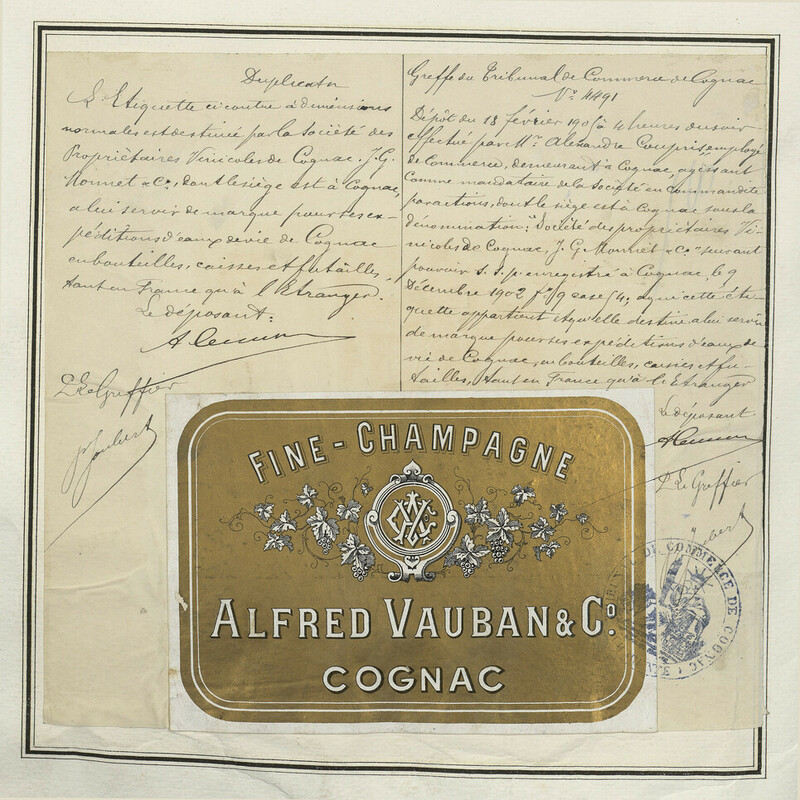 Duplicata
L'Etiquette ci contre à dimensions
normales est destinée par la Société des
Propriétaires Vinicoles de Cognac. J. G.
Monnet & Co, dont le siège est à Cognac,
a lui servir de marque pour ses ex-
péditions d'eaux de vie de Cognac
en bouteilles, caisses et futailles,
tant en France qu'à l'Etranger.
Le déposant:
Le Greffier
Joubert
Greffe du Tribunal de Commerce de Cognac
No 4491
Dépôt du 18 février 190 à 4 heures du soir
effectué par Mr Alexandre Couprie, employé
de Commerce, demeurant à Cognac, agissant
comme mandataire de la Société en commandite
par actions, dont le siège est à Cognac sous la
dénomination: "Société des propriétaires Vi-
nicoles de Cognac, J. G. Monnet & Co" suivant
pouvoir s. s. p. enregistré à Cognac, le 9
Décembre 1902 fo 9 case 14; a que cette éti-
quette appartient et qu'elle destine a lui servir
de marque pour ses expéditions d'eaux de
vie de Cognac, en bouteilles, caisses et fu-
tailles, tant en France qu'à l'Etranger
Le déposant
Le Greffier
FINE-CHAMPAGNE
ALFRED VAUBAN & Co.
COGNAC
TRIBUNAL DE COMMERCE DE COGNAC